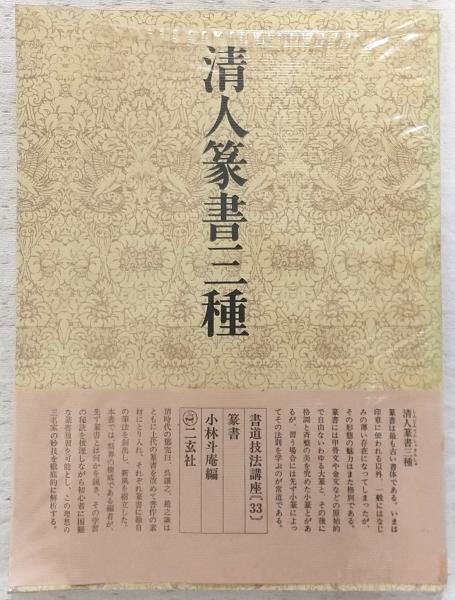 清人篆書三種
清人篆書三種
篆書は最も古い書体である。いまは
印章に使われる以外、一般にはなじ
みの薄い存在になってしまったが、
その形態の魅力はまた格別である。
篆書には甲骨文や金文などの原始的
で自由ないわゆる大篆と、その後に
格調と斉整の美を究めた小篆とがあ
るが、習う場合には先ず小篆によっ
てその法則を学ぶのが常道である。
書道技法講座〔33〕
篆書
小林斗盦編
二玄社
清時代の鄧完白、呉譲之、趙之謙は
ともに上代の篆書を改めて書作の素
材にとり入れ、それぞれ篆書に独自
の筆法を創出し、新風を樹立した。
本書では、斯界の権威である編者が、
先ず篆書とは何かを説き、その学習
の秘訣を披瀝しながら初心者に困難
な篆書独習を可能とし、この理想の
三名家の妙技を徹底的に解析する。